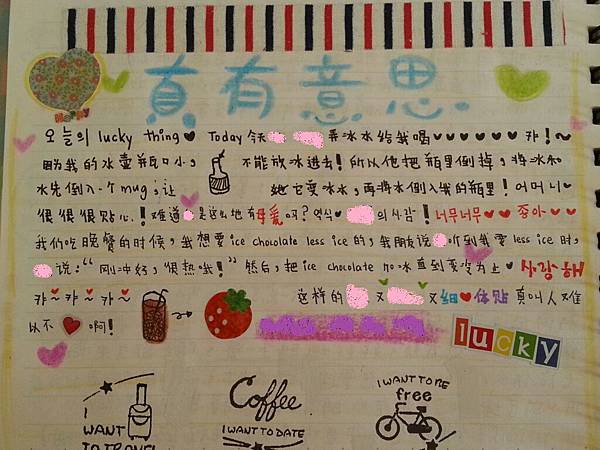 Happy
真有意思.
오늘의 lucky thing♥ Today 今天 弄冰水给我喝♥♥♥♥♥♥ 캬!~
因为我的水壶井瓶口小, 不能放冰进去! 所以他把瓶里倒掉, 将冰和
水先倒入一个mug; 让 她它变冰水, 再将水倒入我的瓶里! 어머니♥
很很很贴心! 难道 是这么地有母爱吗? 역시♥ 의 사람! 너무너무♥♥ 좋아♥♥
我们吃晚餐的时候, 我想要ice chocolate less ice的, 我朋友说 听到我要less ice时,
说: “刚冲好, 很热哦!” 然后, 把ice chocolate 加冰直到变凉为止♥ 사랑해
캬~캬~캬~ 这样的 又 又细♥体贴 真叫人难
以不♥啊!
lucky
I WANT TO TRAVEL
Coffee
I WANT TO DATE
I WANT TO BE
free